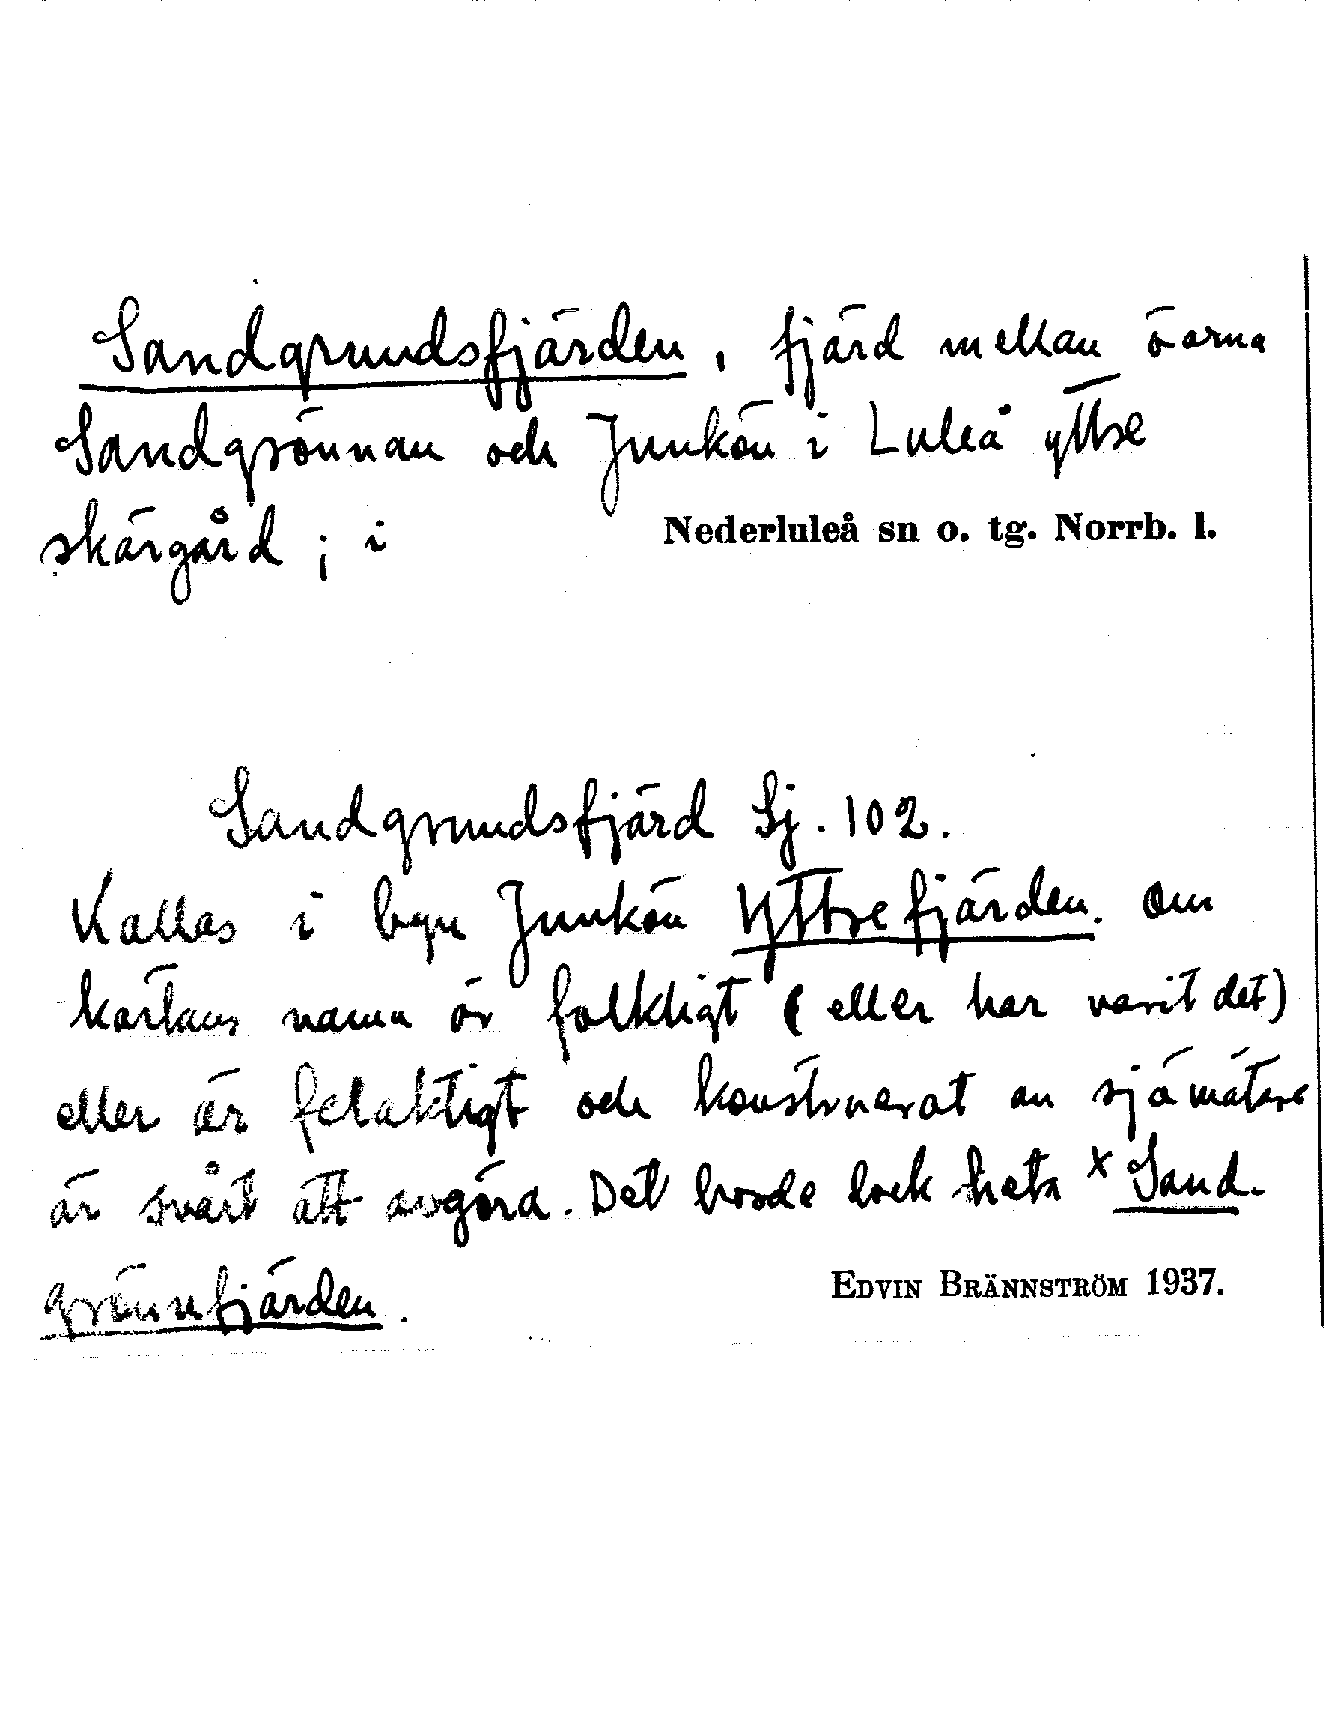 Sandgrundsfjärden, fjärd mellan öarna
Sandgrönnan och Junkön i Luleå yttre
skärgård; i Nederluleå sn o. tg. Norrb. l.
Sandgrundsfjärd Sj. 102.
Kallas i byn Junkön Yttrefjärden. Om
kartans namn är folkligt (eller har varit det)
eller är felaktigt och konstruerat av sjömätare
är svårt att avgöra. Det borde dock heta x Sand-
grönnfjärden.
EDVIN BRÄNNSTRÖM 1937.